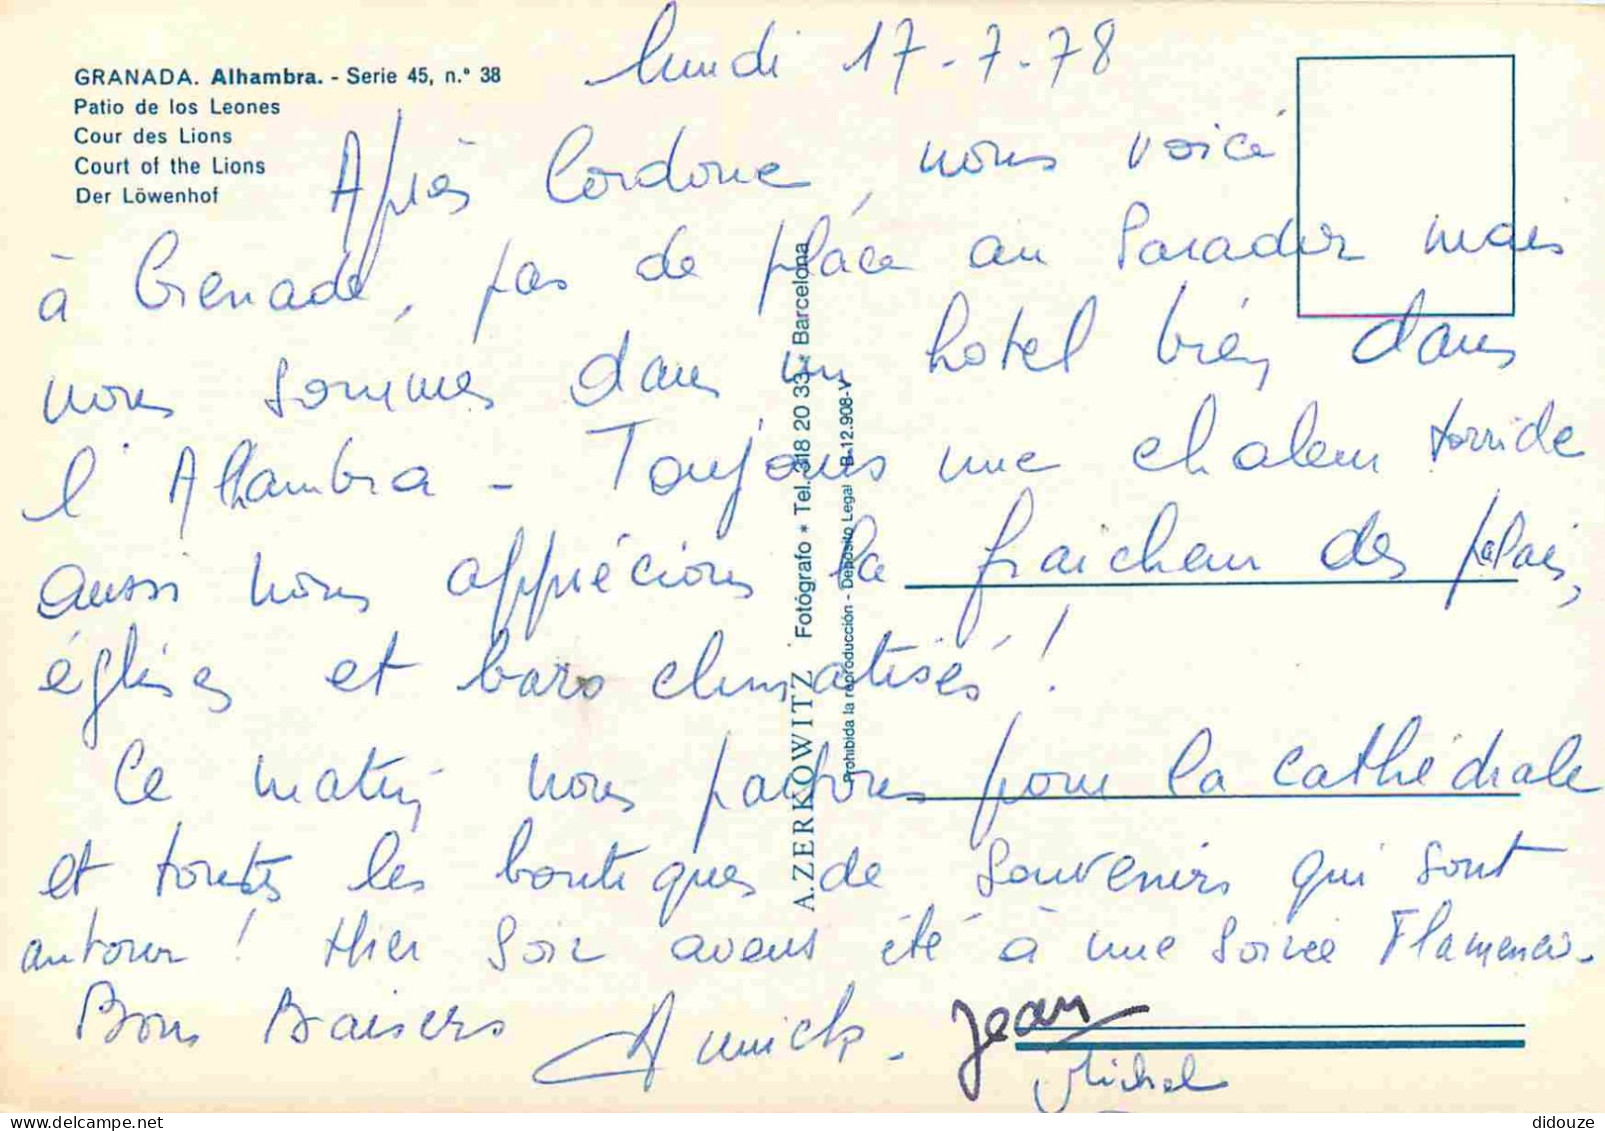 lundi 17-7-78
GRANADA. Alhambra. - Serie 45, n.º 38
Patio de los Leones
Cour des Lions
Court of the Lions
Der Löwenhof
Après Cordoue, nous voici
à Grenade, pas de place au Parador mais
nous sommes dans un hotel bien dans
l'Alhambra - Toujours une chaleur torride
aussi nous apprécions la fraicheur des palais,
églises et bars climatisés !
Ce matin nous partons pour la cathédrale
et toutes les boutiques de souvenirs qui sont
autour ! Hier soir avons été à une soirée Flamenco.
Bons Baisers Annick. Jean
Michel
A. ZERKOWITZ Fotógrafo * Tel. 318 20 33 - Barcelona
Prohibida la reproducción - Depósito Legal B-12.908-V
didouze